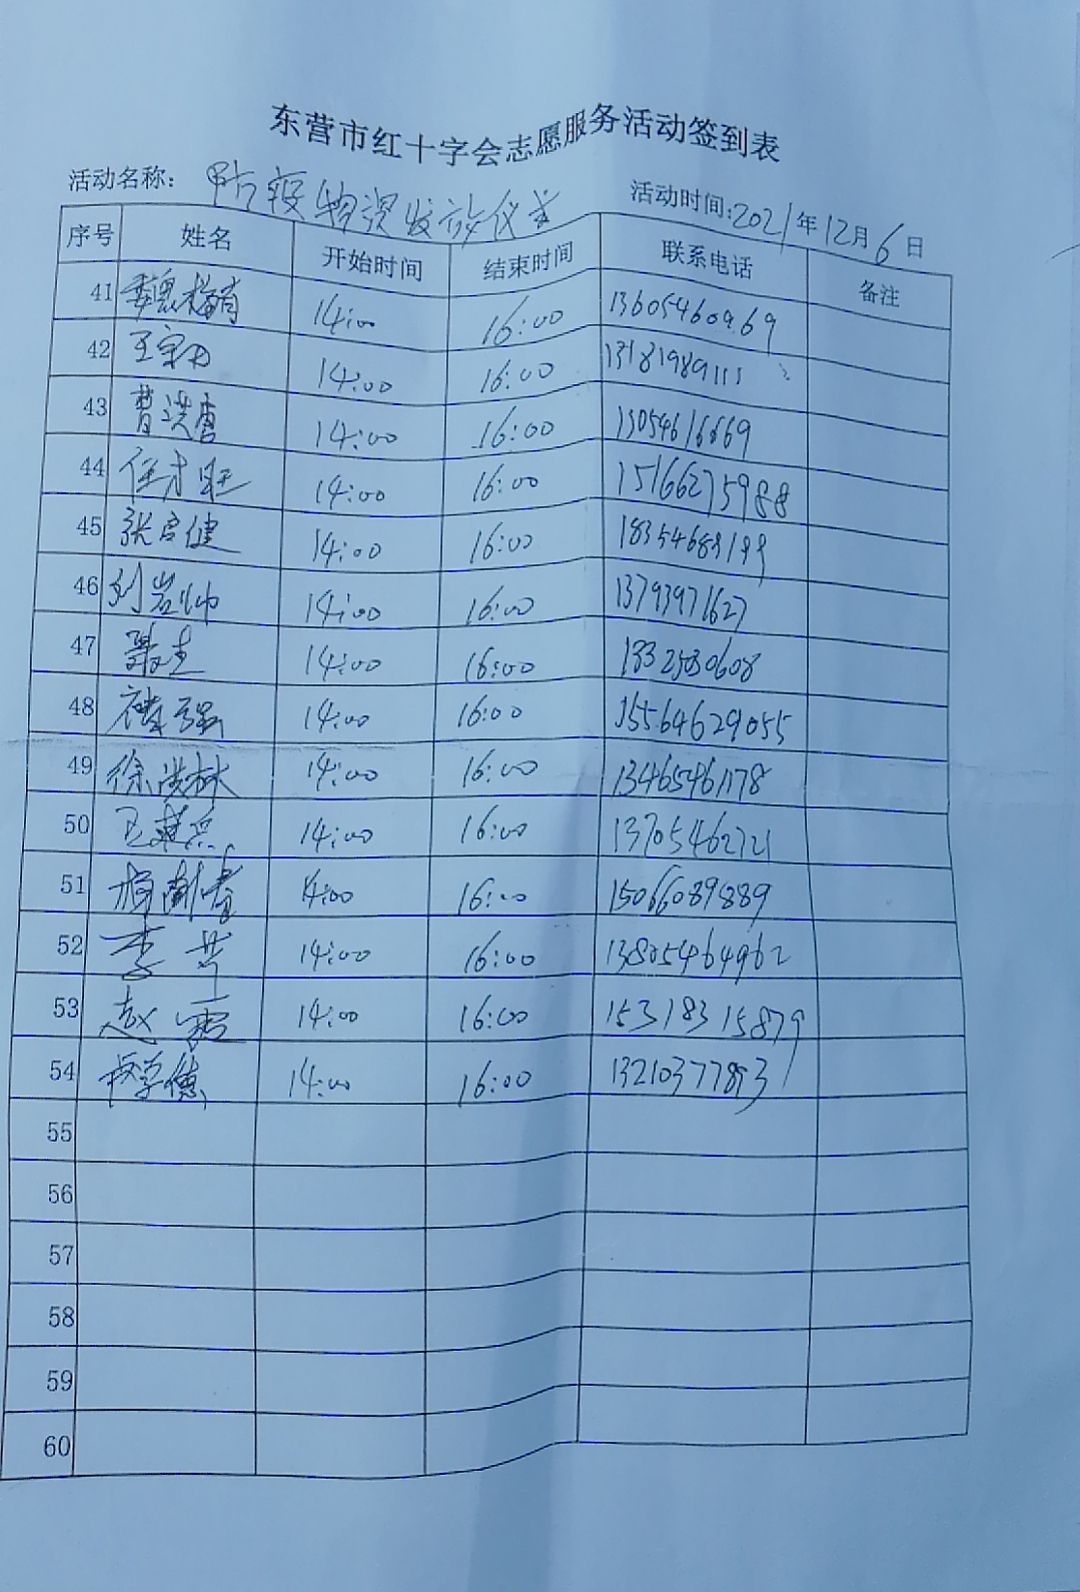 东营市红十字会志愿服务活动签到表
活动名称: 防疫物资发放仪式 活动时间:2021年12月6日
序号 姓名 开始时间 结束时间 联系电话 备注
41 魏 14:00 16:00 13605460969
42 王 14:00 16:00 13181989111
43 曹洪 14:00 16:00 13054616669
44 任才旺 14:00 16:00 15166275988
45 张 健 14:00 16:00
46 刘岩帅 14:00 16:00 13793971627
47 14:00 16:00
48 强 14:00 16:00 15564629055
49 徐洪林 14:00 16:00 13465461178
50 王 14:00 16:00 13705462721
51 杨 14:00 16:00 15066089889
52 李 14:00 16:00 13805464962
53 赵霞 14:00 16:00 15318315879
54 学德 14:00 16:00 13210377853
55
56
57
58
59
60